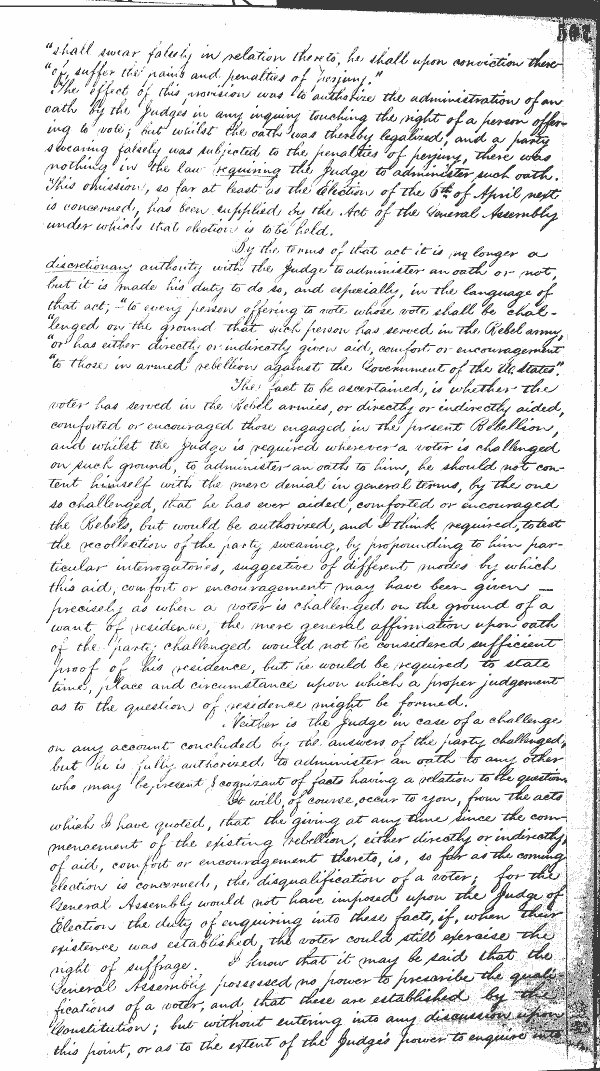 507
"shall swear falsely in relation thereto, he shall upon conviction there-
"of, suffer the pains and penalties of perjury."
The effect of this provision was to authorize the administration of an
oath by the Judges in any inquiry touching the right of a person offer-
ing to vote; but whilst the oath was thereby legalized, and a party
swearing falsely was subjected to the penalties of perjury, there was
nothing in the law requiring the Judge to administer such oath.
This omission, so far at least as the Election of the 6th of April next
is concerned, has been supplied by the Act of the General Assembly
under which that election is to be held.
By the terms of that act it is no longer a
discretionary authority with the Judge to administer an oath or not,
but it is made his duty to do so, and especially, in the language of
that act; "to every person offering to vote whose vote shall be chal-
"lenged on the ground that such person has served in the Rebel army,
"or has either directly or indirectly given aid, comfort or encouragement
"to those in armed rebellion against the Government of the U. States".
The fact to be ascertained, is whether the
voter has served in the Rebel armies, or directly or indirectly aided,
comforted or encouraged those engaged in the present Rebellion,
and whilst the Judge is required wherever a voter is challenged
on such ground, to administer an oath to him, he should not con-
tent himself with the mere denial in general terms, by the one
so challenged, that he has ever aided, comforted or encouraged
the Rebels, but would be authorized, and I think required, to test
the recollection of the party swearing, by propounding to him par-
ticular interrogatories, suggestive of different modes by which
this aid, comfort or encouragement may have been given —
precisely as when a voter is challenged on the ground of a
want of residence, the mere general affirmation upon oath
of the party challenged would not be considered sufficient
proof of his residence, but he would be required to state
time, place and circumstance upon which a proper judgement
as to the question of residence might be formed.
Neither is the Judge in case of a challenge
on any account concluded by the answers of the party challenged,
but he is fully authorized to administer an oath to any other
who may be present & cognizant of facts having a relation to the question.
It will, of course, occur to you, from the acts
which I have quoted, that the giving at any time since the com-
mencement of the existing rebellion, either directly or indirectly,
of aid, comfort or encouragement thereto, is, so far as the coming
election is concerned, the disqualification of a voter; for the
General Assembly would not have imposed upon the Judge of
Election the duty of enquiring into these facts, if, when their
existence was established, the voter could still exercise the
right of suffrage. I know that it may be said that the
General Assembly possessed no power to prescribe the quali-
fications of a voter, and that these are established by the
Constitution; but without entering into any discussion upon
this point, or as to the extent of the Judge's power to enquire into